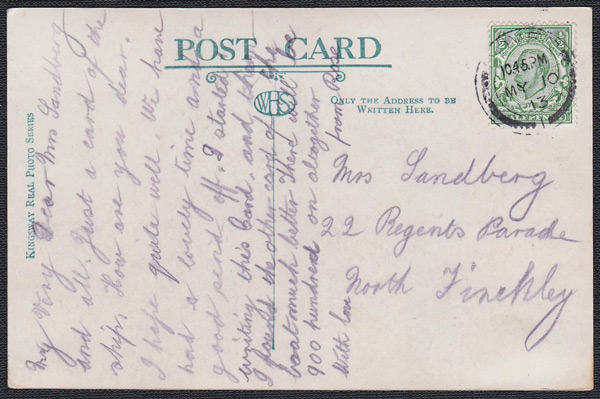 POST CARD
WHS
ONLY THE ADDRESS TO BE
WRITTEN HERE.
KINGSWAY REAL PHOTO SERIES
10.45 PM
MY 10
13
My Very Dear Mrs Sandberg
and all. Just a card of the
ship. How are you dear.
I hope quite well. We have
had a lovely time and a
good send off. I started
writing this Card, and then
I found the other card of the
boat much better There will be
900 hundred on altogether
With love from Rose
Mrs Sandberg
22 Regents Parade
North Finchley